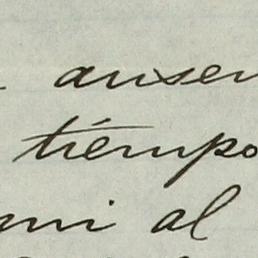 ausen
tiempo
mi al